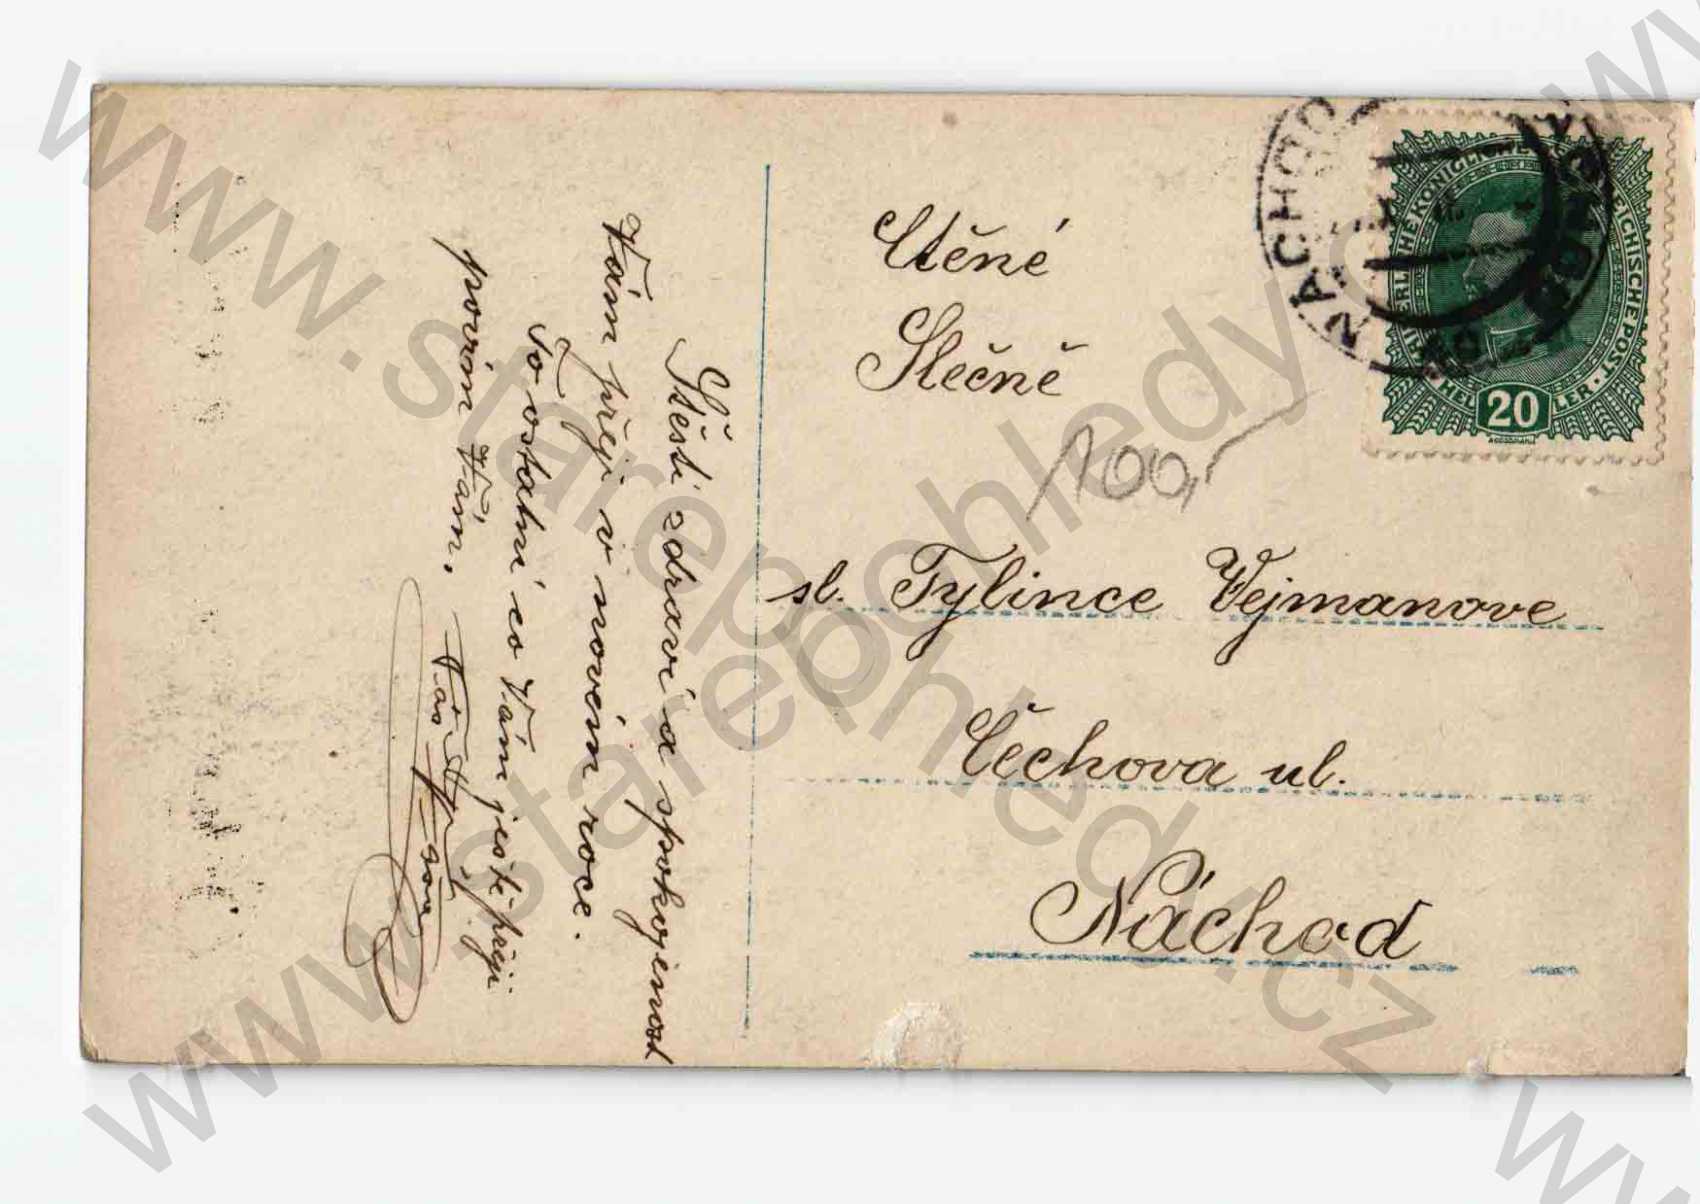 Štěstí zdraví a spokojenost
Vám přeji v novém roce.
To ostatní co Vám ještě přeji
povím Vám.
Ctěné
Slečně
100,-
sl. Tylince Vejmanove
Čechova ul.
Náchod
NÁCHOD
KAISERLICHE KÖNIGLICHE ÖSTERREICHISCHE POST
20
HELLER
www.starepohledy.cz
www.starepohledy.cz